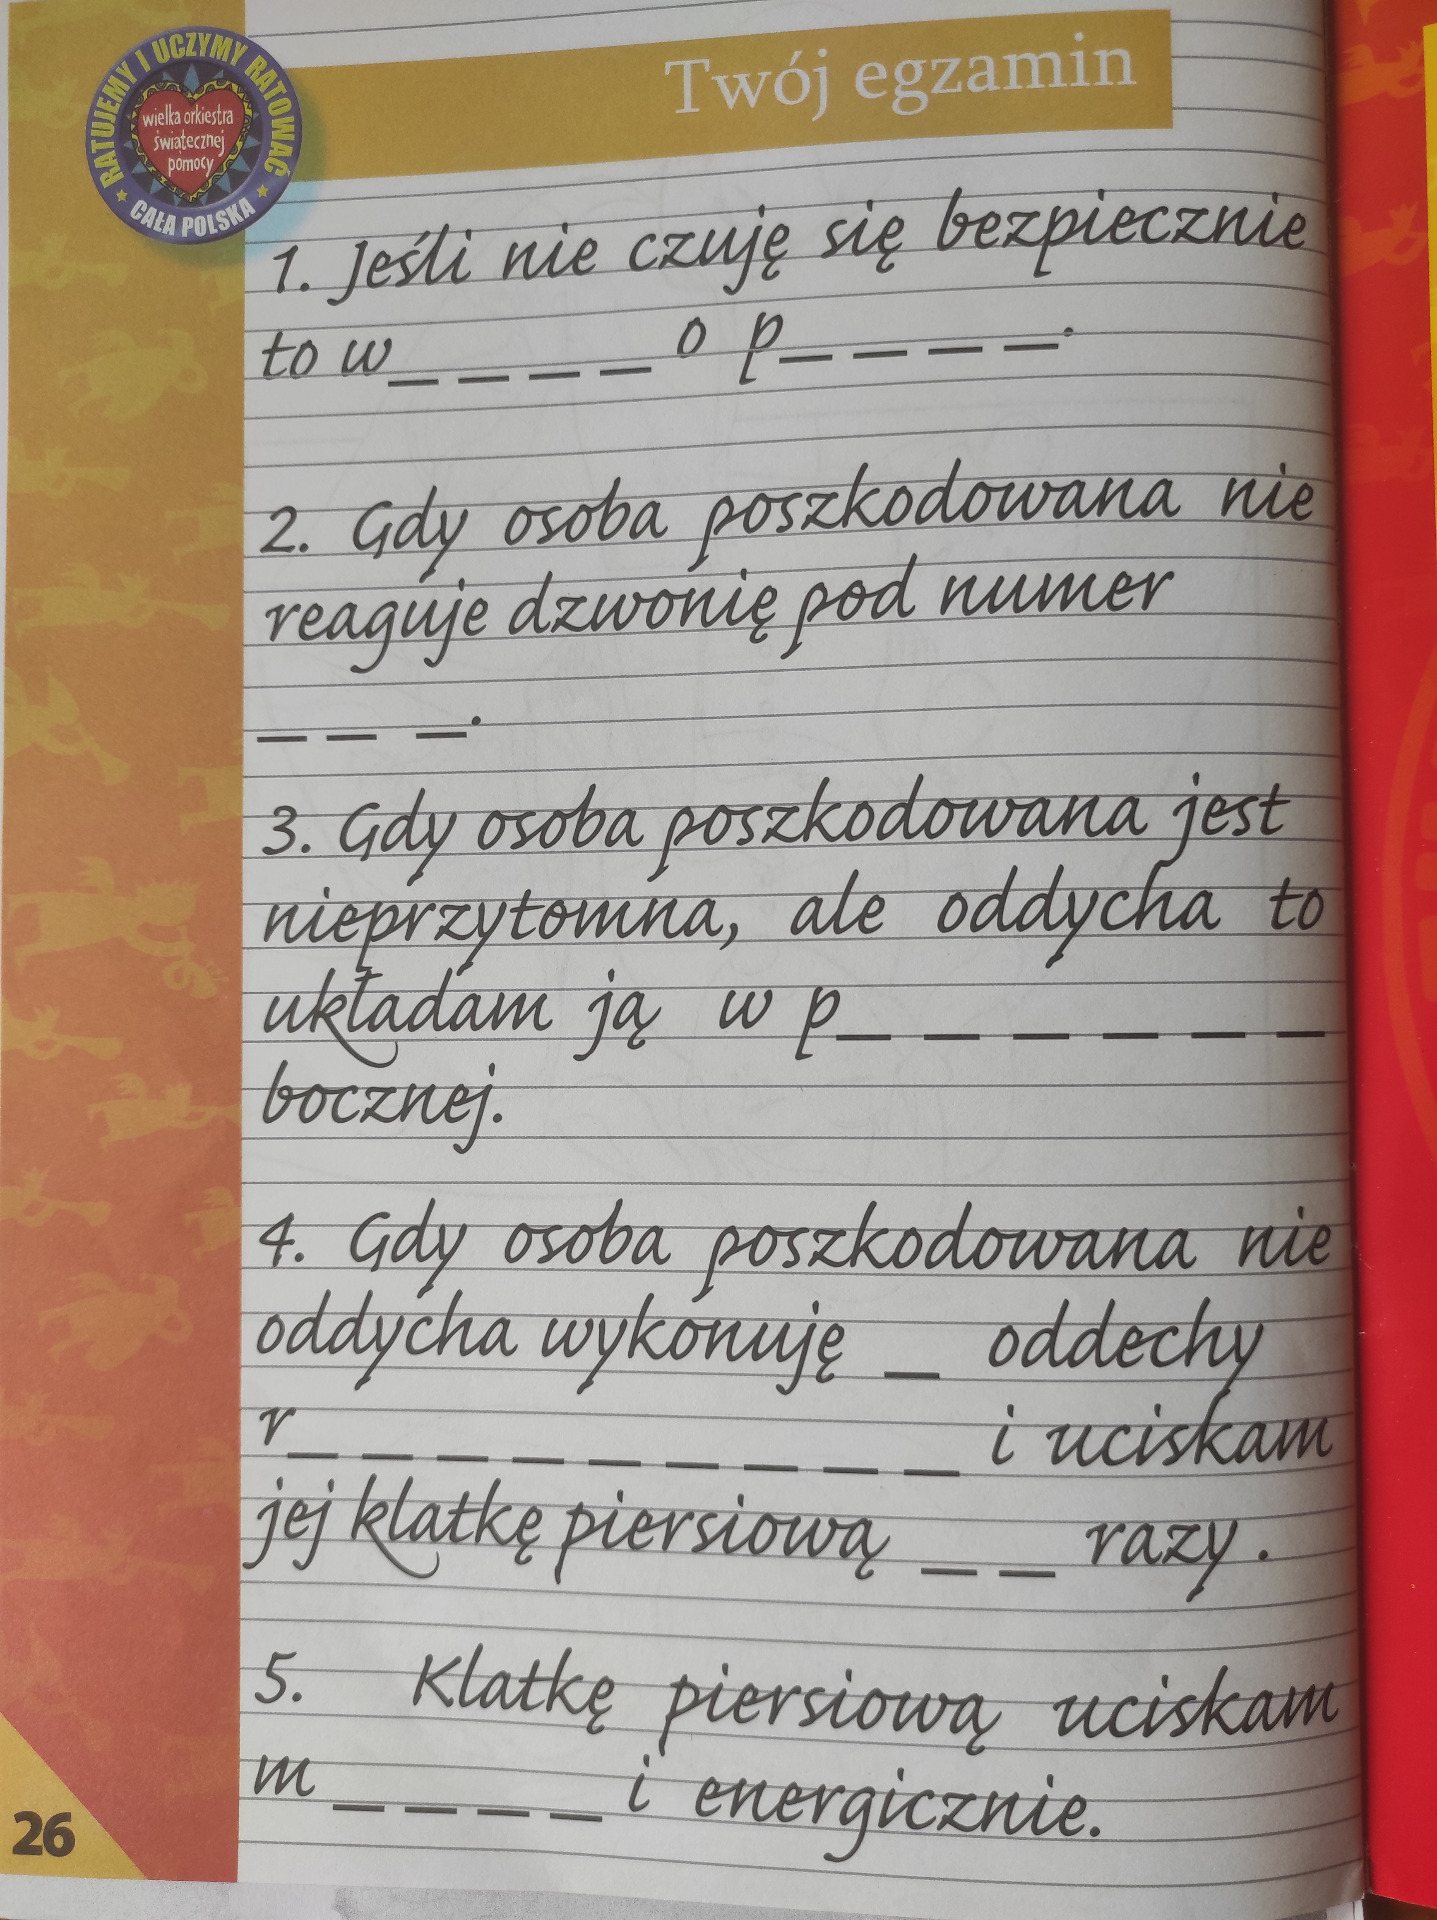 RATUJEMY I UCZYMY RATOWAĆ
wielka orkiestra
świątecznej
pomocy
CAŁA POLSKA
Twój egzamin
1. Jeśli nie czuję się bezpiecznie
to w_ _ _ _ o p_ _ _ _.
2. Gdy osoba poszkodowana nie
reaguje dzwonię pod numer
_ _ _.
3. Gdy osoba poszkodowana jest
nieprzytomna, ale oddycha to
układam ją w p_ _ _ _ _ _
bocznej.
4. Gdy osoba poszkodowana nie
oddycha wykonuję _ oddechy
r_ _ _ _ _ _ _ _ _ i uciskam
jej klatkę piersiową _ _ razy.
5. Klatkę piersiową uciskam
m_ _ _ _ i energicznie.
26